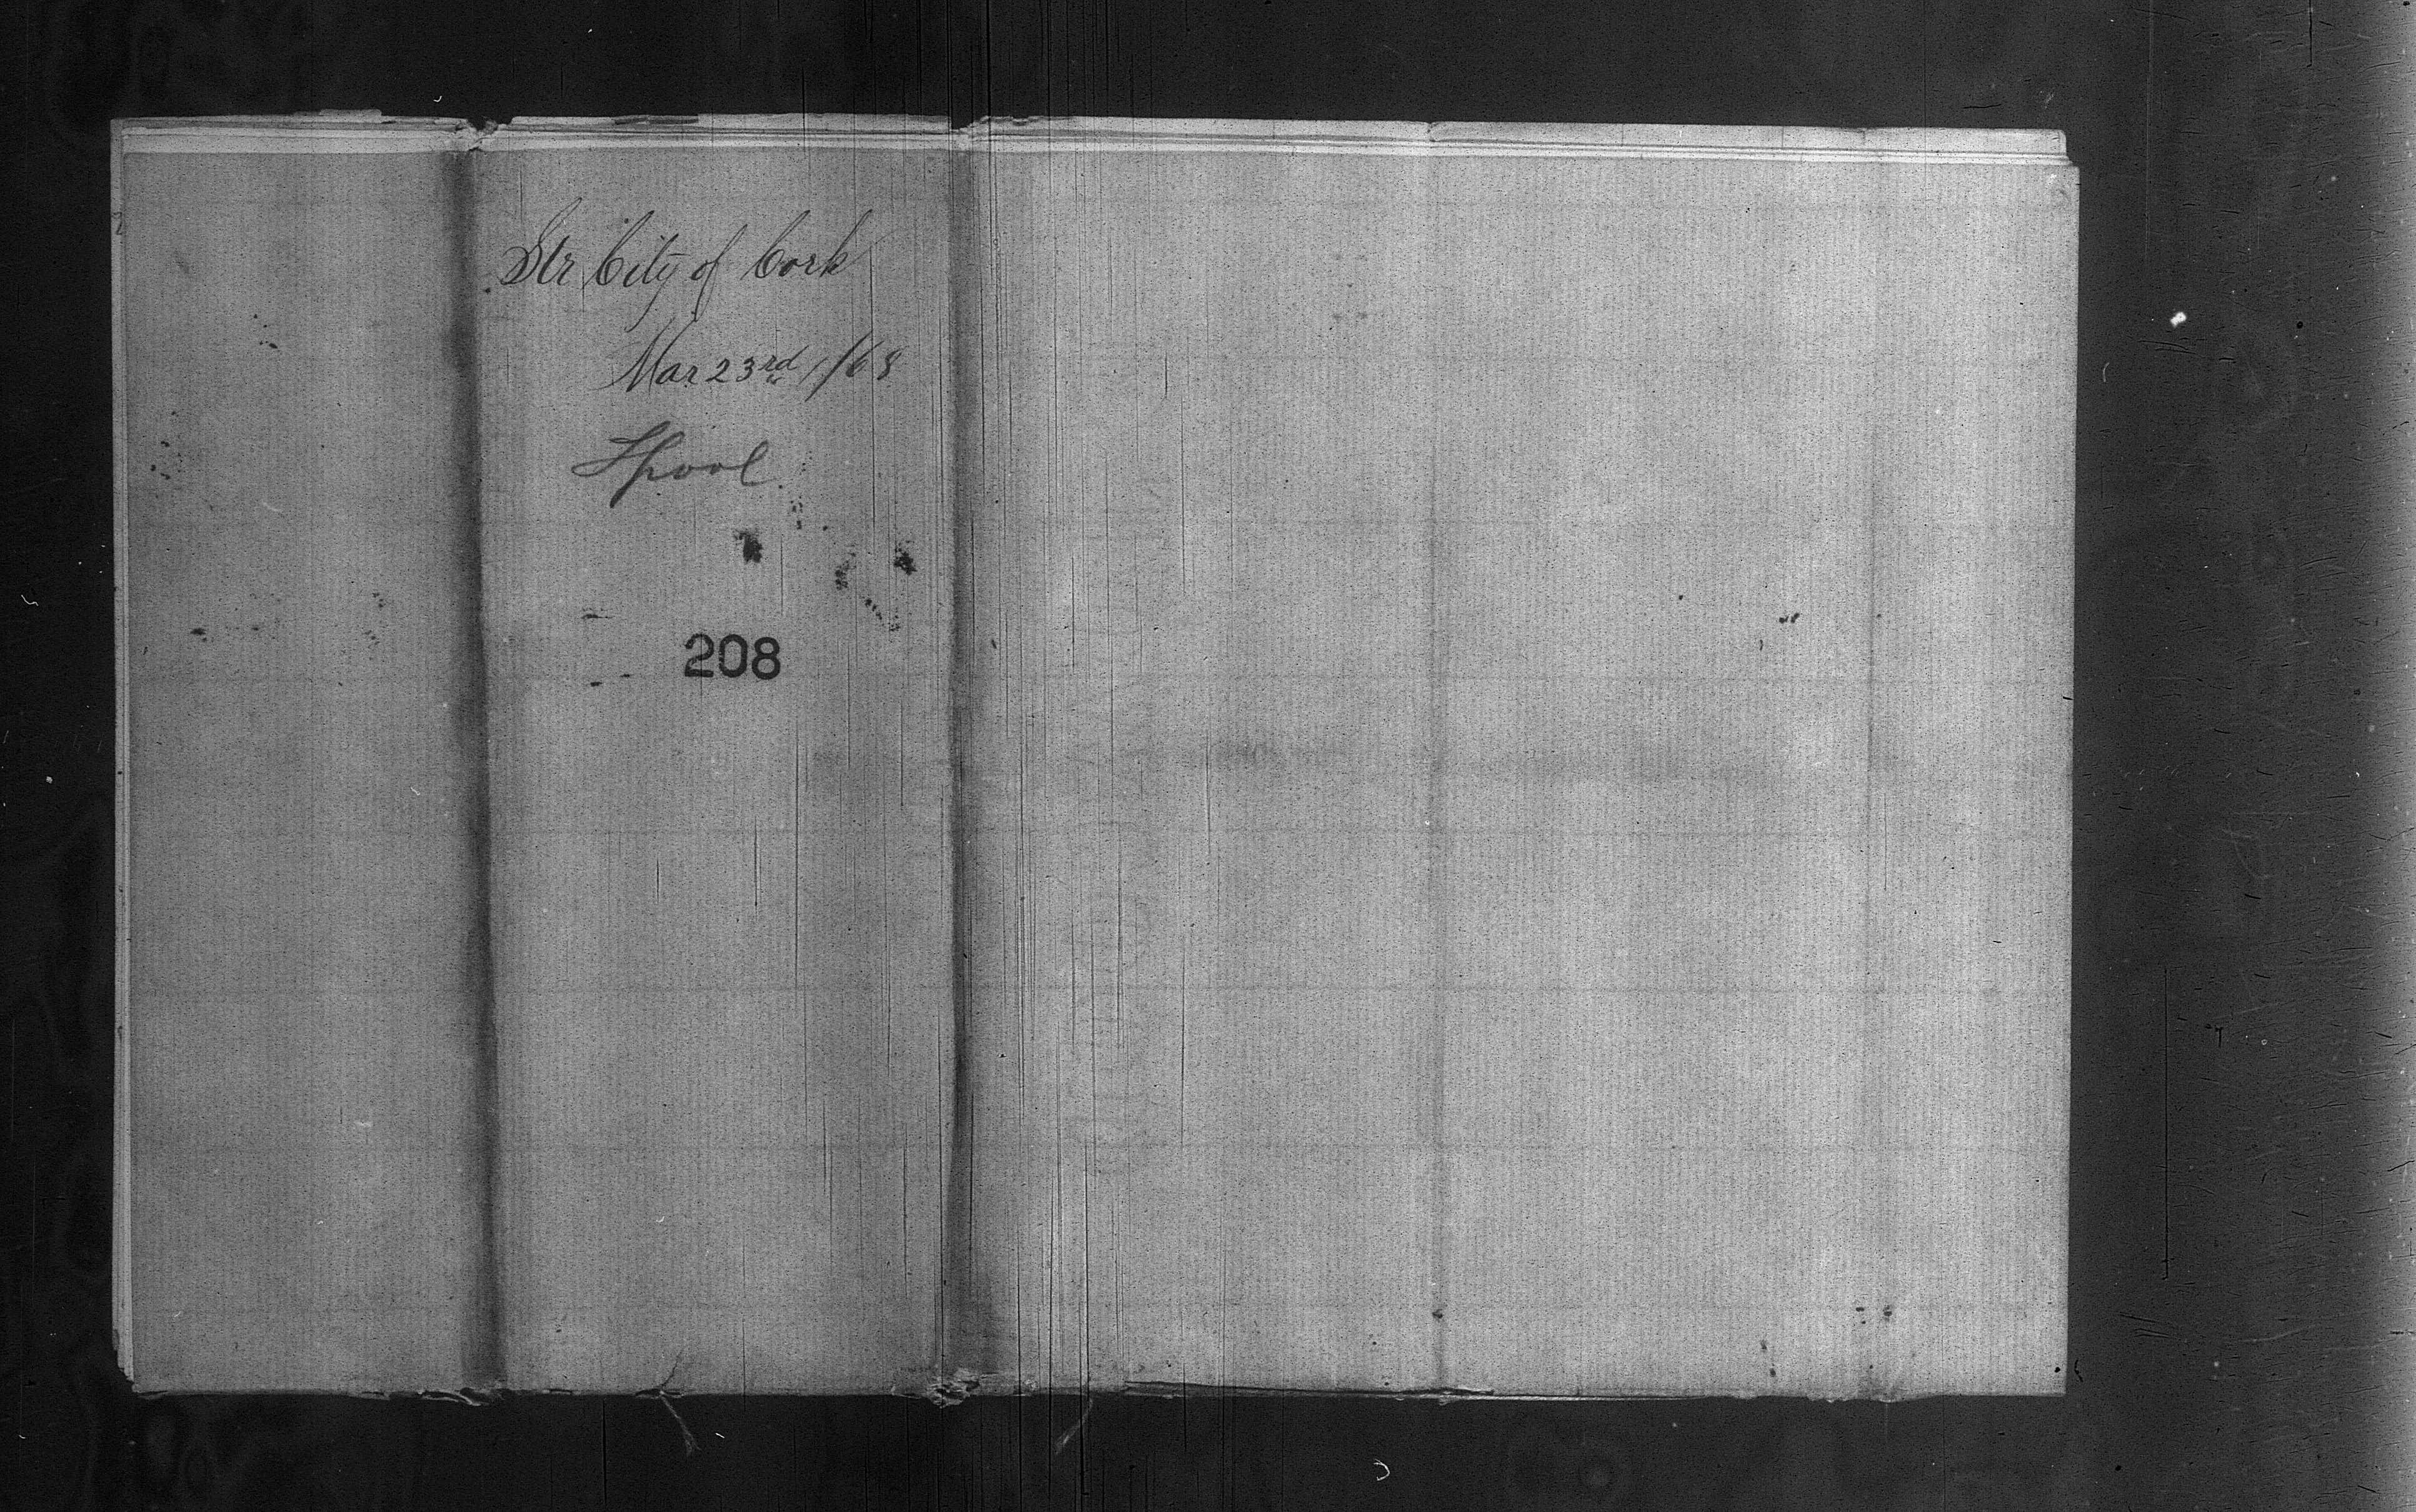 Str City of Cork
Mar 23rd /68
Lpool
208